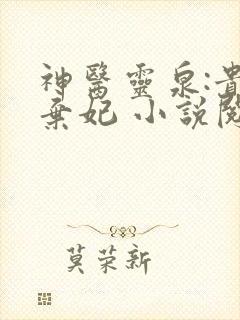 神醫靈泉:貴
棄妃 小說閱
莫荣新